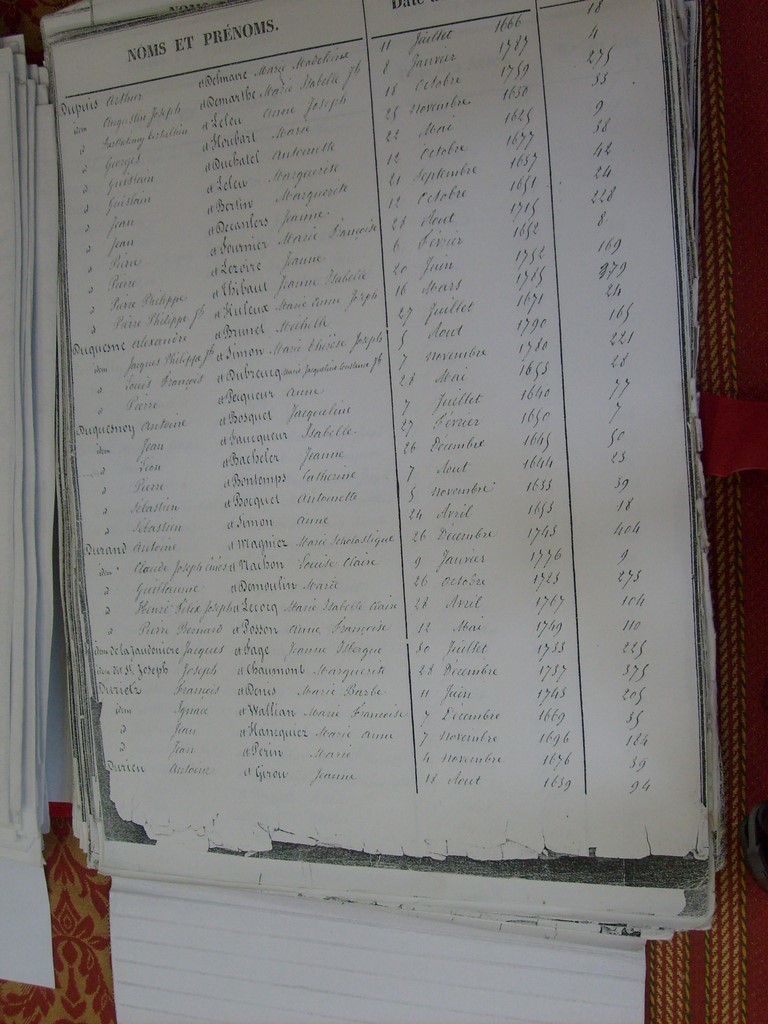 NOMS ET PRÉNOMS.
Dupuis Arthur et Delmaire Marie Madeleine 11 Juillet 1666 18
idem Augustin Joseph et Demarthe Marie Isabelle Jh 8 Janvier 1787 4
d et Leleu Anne Joseph 18 Octobre 1759 275
d Georges et Houbart Marie 25 Novembre 1650 33
d Guislain et Duchatel Antoinette 22 Mai 1625 9
d Guislain et Leleu Marguerite 12 Octobre 1677 38
d Jean et Bertin Marguerite 21 Septembre 1657 42
d Jean et Decanlers Jeanne 12 Octobre 1651 24
d Pierre et Fournier Marie Françoise 28 Aout 1715 228
d Pierre et Lezoire Jeanne 6 Février 1652 8
d Pierre Philippe et Thibaut Jeanne Isabelle 20 Juin 1752 169
d Pierre Philippe Jh et Huleux Marie Anne Joseph 16 Mars 1765 379
Duquesne Alexandre et Brunel Michelle 27 Juillet 1671 24
idem Jacques Philippe Jh et Simon Marie Thérèse Joseph 5 Aout 1790 165
d Louis François et Dubreucq Marie Jacqueline Constance Jh 7 Novembre 1780 221
d Pierre et Peigneur Anne 28 Mai 1653 28
Duquesnoy Antoine et Bosquet Jacqueline 7 Juillet 1640 77
idem Jean et Fancqueur Isabelle 27 Février 1650 7
d Léon et Bachelez Jeanne 26 Décembre 1645 50
d Pierre et Bontemps Catherine 7 Aout 1644 23
d Sébastien et Bocquet Antoinette 5 Novembre 1633 39
d Sébastien et Simon Anne 24 Avril 1653 18
Durand Antoine et Magniez Marie Scholastique 26 Décembre 1743 404
idem Claude Joseph et Louise Claire 9 Janvier 1776 9
d Guillaume et Demoulin Marie 26 Octobre 1723 273
d Henri Félix Joseph et Lecocq Marie Isabelle Claire 28 Avril 1767 104
d Pierre Bernard et Posson Anne Françoise 12 Mai 1749 110
idem de la Jaudonière Jacques et Sage Jeanne Isbergue 30 Juillet 1733 225
idem dit St. Joseph Joseph et Chaumont Marguerite 28 Décembre 1737 375
Duriez François et Denis Marie Barbe 11 Juin 1743 205
idem Ignace et Wallian Marie Françoise 7 Décembre 1669 35
d Jean et Hanequiez Marie Anne 7 Novembre 1696 184
d Jean et Perin Marie 4 Novembre 1676 39
Durieu Antoine et Girou Jeanne 18 Aout 1639 94